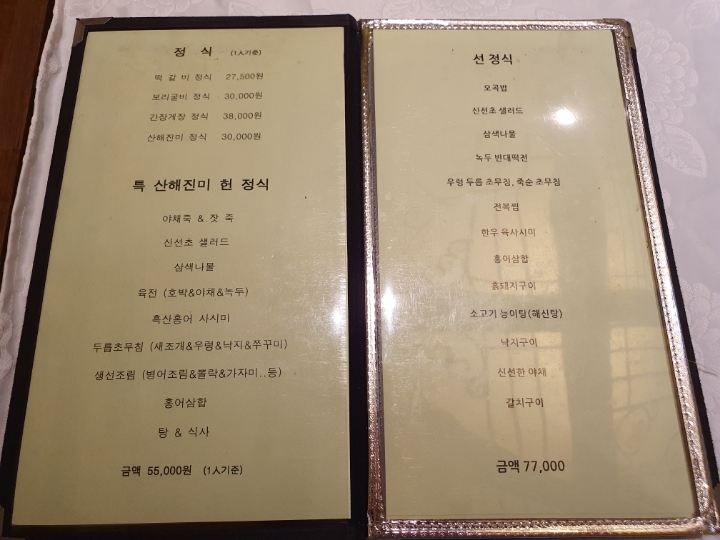 정 식 (1人기준)
떡 갈 비 정식 27,500원
보리굴비 정식 30,000원
간장게장 정식 38,000원
산해진미 정식 30,000원
특 산해진미 헌 정식
야채죽 & 잣 죽
신선초 샐러드
삼색나물
육전 (호박&야채&녹두)
흑산홍어 사시미
두릅초무침 (새조개&우렁&낙지&쭈꾸미)
생선조림 (병어조림&뽈락&가자미..등)
홍어삼합
탕 & 식사
금액 55,000원 (1人기준)
선 정식
오곡밥
신선초 샐러드
삼색나물
녹두 빈대떡전
우렁 두릅 초무침, 죽순 초무침
전복찜
한우 육사시미
홍어삼합
흑돼지구이
소고기 능이탕(해신탕)
낙지구이
신선한 야채
갈치구이
금액 77,000